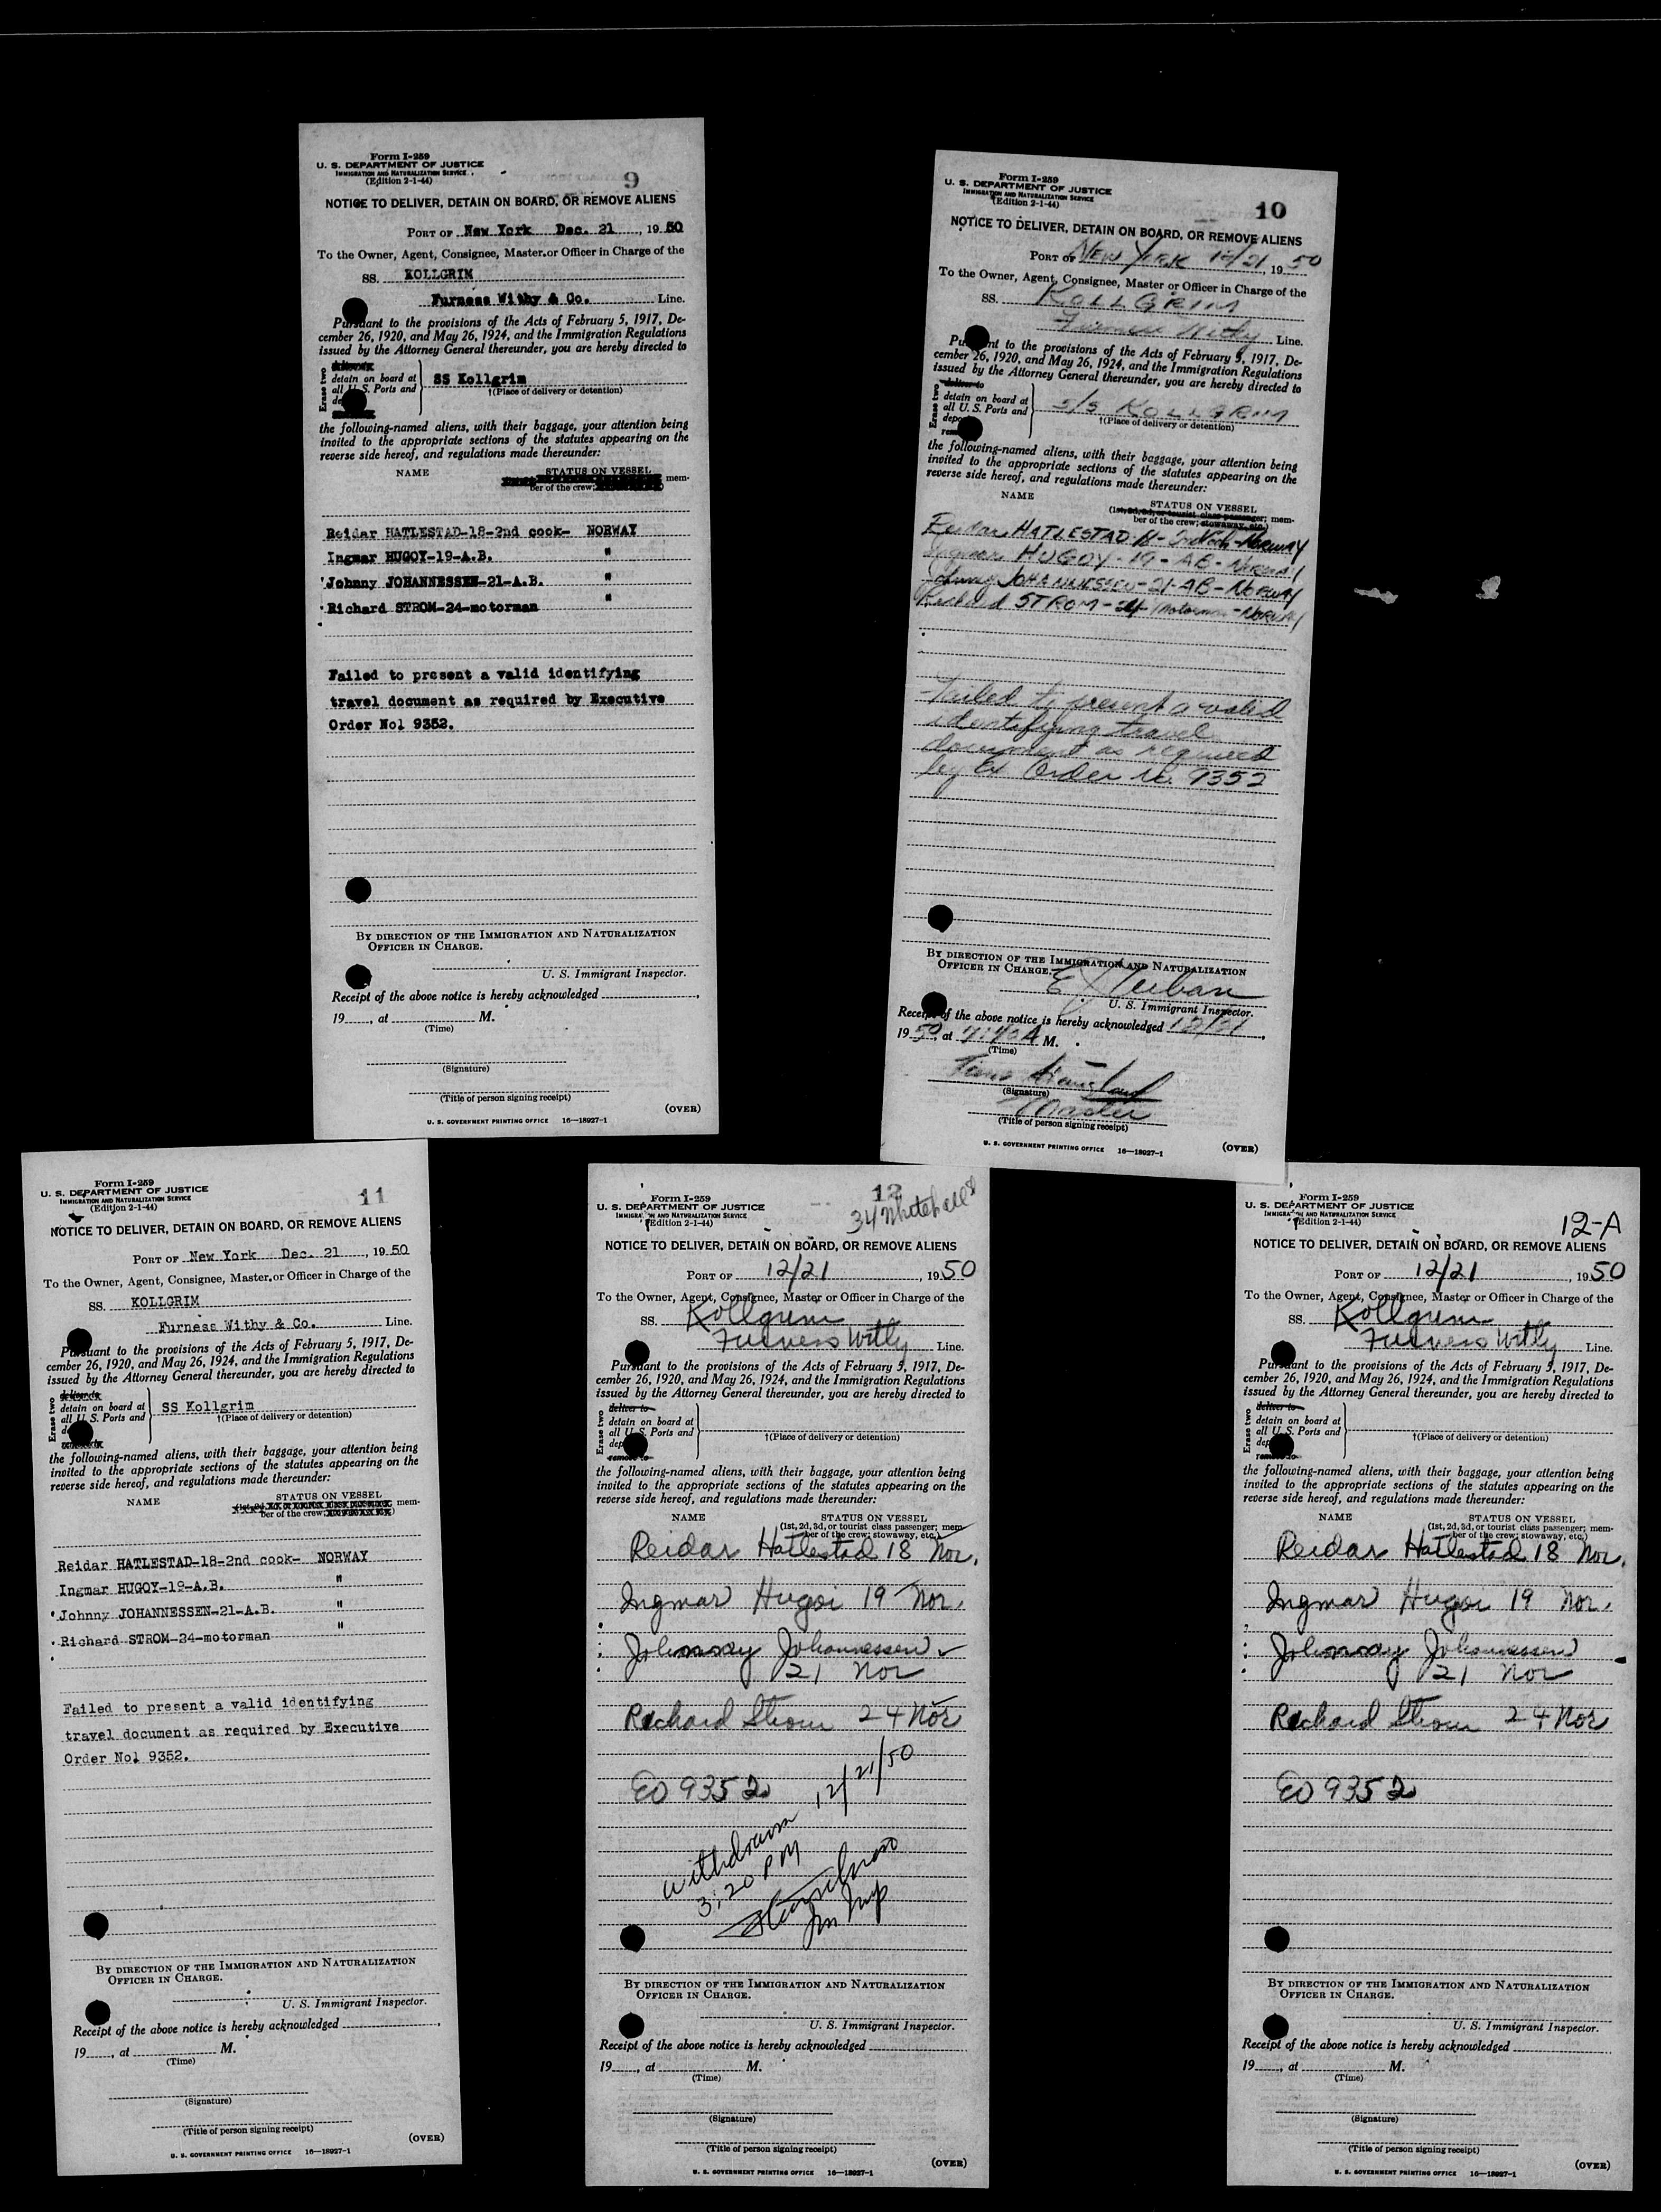 Form I-259
U. S. DEPARTMENT OF JUSTICE
IMMIGRATION AND NATURALIZATION SERVICE
(Edition 2-1-44)
9
NOTICE TO DELIVER, DETAIN ON BOARD, OR REMOVE ALIENS
PORT OF New York Dec. 21, 19 50
To the Owner, Agent, Consignee, Master, or Officer in Charge of the
SS. KOLLGRIM
Furness Withy & Co. Line.
Pursuant to the provisions of the Acts of February 5, 1917, De-
cember 26, 1920, and May 26, 1924, and the Immigration Regulations
issued by the Attorney General thereunder, you are hereby directed to
Erase two
detain on board at
all U. S. Ports and
SS Kollgrim
†(Place of delivery or detention)
the following-named aliens, with their baggage, your attention being
invited to the appropriate sections of the statutes appearing on the
reverse side hereof, and regulations made thereunder:
NAME STATUS ON VESSEL
mem-
ber of the crew;
Reidar HATLESTAD-18-2nd cook- NORWAY
Ingmar HUGOY-19-A.B. "
Johnny JOHANNESSEN-21-A.B. "
Richard STROM-24-motorman "
Failed to present a valid identifying
travel document as required by Executive
Order No1 9352.
BY DIRECTION OF THE IMMIGRATION AND NATURALIZATION
OFFICER IN CHARGE.
U. S. Immigrant Inspector.
Receipt of the above notice is hereby acknowledged
19 , at M.
(Time)
(Signature)
(Title of person signing receipt)
U. S. GOVERNMENT PRINTING OFFICE 16—18927-1
(OVER)
Form I-259
U. S. DEPARTMENT OF JUSTICE
IMMIGRATION AND NATURALIZATION SERVICE
(Edition 2-1-44)
10
NOTICE TO DELIVER, DETAIN ON BOARD, OR REMOVE ALIENS
PORT OF NEW YORK 12/21, 19 50
To the Owner, Agent, Consignee, Master or Officer in Charge of the
SS. KOLLGRIM
Furness Withy Line.
Pursuant to the provisions of the Acts of February 5, 1917, De-
cember 26, 1920, and May 26, 1924, and the Immigration Regulations
issued by the Attorney General thereunder, you are hereby directed to
Erase two
deliver to
detain on board at
all U. S. Ports and
S/S KOLLGRIM
†(Place of delivery or detention)
the following-named aliens, with their baggage, your attention being
invited to the appropriate sections of the statutes appearing on the
reverse side hereof, and regulations made thereunder:
NAME STATUS ON VESSEL
(1st, 2d, 3d, or tourist class passenger; mem-
ber of the crew; stowaway, etc.)
Reidar HATLESTAD-18-2nd Cook-Norway
Ingmar HUGOY-19-AB-NORWAY
Johnny JOHANNESSEN-21-AB-NORWAY
Richard STROM-24-Motorman-NORWAY
Failed to present a valid
identifying travel
document as required
by Ex Order No. 9352
BY DIRECTION OF THE IMMIGRATION AND NATURALIZATION
OFFICER IN CHARGE.
U. S. Immigrant Inspector.
Receipt of the above notice is hereby acknowledged 12/21,
19 50, at 9:40 A M.
(Time)
(Signature)
Master
(Title of person signing receipt)
U. S. GOVERNMENT PRINTING OFFICE 16—18927-1
(OVER)
Form I-259
U. S. DEPARTMENT OF JUSTICE
IMMIGRATION AND NATURALIZATION SERVICE
(Edition 2-1-44)
11
NOTICE TO DELIVER, DETAIN ON BOARD, OR REMOVE ALIENS
PORT OF New York Dec. 21, 19 50
To the Owner, Agent, Consignee, Master, or Officer in Charge of the
SS. KOLLGRIM
Furness Withy & Co. Line.
Pursuant to the provisions of the Acts of February 5, 1917, De-
cember 26, 1920, and May 26, 1924, and the Immigration Regulations
issued by the Attorney General thereunder, you are hereby directed to
Erase two
detain on board at
all U. S. Ports and
SS Kollgrim
†(Place of delivery or detention)
the following-named aliens, with their baggage, your attention being
invited to the appropriate sections of the statutes appearing on the
reverse side hereof, and regulations made thereunder:
NAME STATUS ON VESSEL
mem-
ber of the crew;
Reidar HATLESTAD-18-2nd cook- NORWAY
Ingmar HUGOY-19-A.B. "
Johnny JOHANNESSEN-21-A.B. "
Richard STROM-24-motorman "
Failed to present a valid identifying
travel document as required by Executive
Order No1 9352.
BY DIRECTION OF THE IMMIGRATION AND NATURALIZATION
OFFICER IN CHARGE.
U. S. Immigrant Inspector.
Receipt of the above notice is hereby acknowledged
19 , at M.
(Time)
(Signature)
(Title of person signing receipt)
U. S. GOVERNMENT PRINTING OFFICE 16—18927-1
(OVER)
Form I-259
U. S. DEPARTMENT OF JUSTICE
IMMIGRATION AND NATURALIZATION SERVICE
(Edition 2-1-44)
12
34 Whitehall St
NOTICE TO DELIVER, DETAIN ON BOARD, OR REMOVE ALIENS
PORT OF 12/21, 19 50
To the Owner, Agent, Consignee, Master or Officer in Charge of the
SS. Kollgrim
Furness Withy Line.
Pursuant to the provisions of the Acts of February 5, 1917, De-
cember 26, 1920, and May 26, 1924, and the Immigration Regulations
issued by the Attorney General thereunder, you are hereby directed to
Erase two
deliver to
detain on board at
all U. S. Ports and
remove to
†(Place of delivery or detention)
the following-named aliens, with their baggage, your attention being
invited to the appropriate sections of the statutes appearing on the
reverse side hereof, and regulations made thereunder:
NAME STATUS ON VESSEL
(1st, 2d, 3d, or tourist class passenger; mem-
ber of the crew; stowaway, etc.)
Reidar Hatlestad 18 Nor.
Ingmar Hugoi 19 Nor.
Johnny Johannessen
21 Nor
Richard Strom 24 Nor
EO 9352
12/21/50
withdrawn
3:20 PM
Im Insp
BY DIRECTION OF THE IMMIGRATION AND NATURALIZATION
OFFICER IN CHARGE.
U. S. Immigrant Inspector.
Receipt of the above notice is hereby acknowledged
19 , at M.
(Time)
(Signature)
(Title of person signing receipt)
U. S. GOVERNMENT PRINTING OFFICE 16—18927-1
(OVER)
Form I-259
U. S. DEPARTMENT OF JUSTICE
IMMIGRATION AND NATURALIZATION SERVICE
(Edition 2-1-44)
12-A
NOTICE TO DELIVER, DETAIN ON BOARD, OR REMOVE ALIENS
PORT OF 12/21, 19 50
To the Owner, Agent, Consignee, Master or Officer in Charge of the
SS. Kollgrim
Furness Withy Line.
Pursuant to the provisions of the Acts of February 5, 1917, De-
cember 26, 1920, and May 26, 1924, and the Immigration Regulations
issued by the Attorney General thereunder, you are hereby directed to
Erase two
deliver to
detain on board at
all U. S. Ports and
remove to
†(Place of delivery or detention)
the following-named aliens, with their baggage, your attention being
invited to the appropriate sections of the statutes appearing on the
reverse side hereof, and regulations made thereunder:
NAME STATUS ON VESSEL
(1st, 2d, 3d, or tourist class passenger; mem-
ber of the crew; stowaway, etc.)
Reidar Hatlestad 18 Nor.
Ingmar Hugoi 19 Nor.
Johnny Johannessen
21 Nor
Richard Strom 24 Nor
EO 9352
BY DIRECTION OF THE IMMIGRATION AND NATURALIZATION
OFFICER IN CHARGE.
U. S. Immigrant Inspector.
Receipt of the above notice is hereby acknowledged
19 , at M.
(Time)
(Signature)
(Title of person signing receipt)
U. S. GOVERNMENT PRINTING OFFICE 16—18927-1
(OVER)